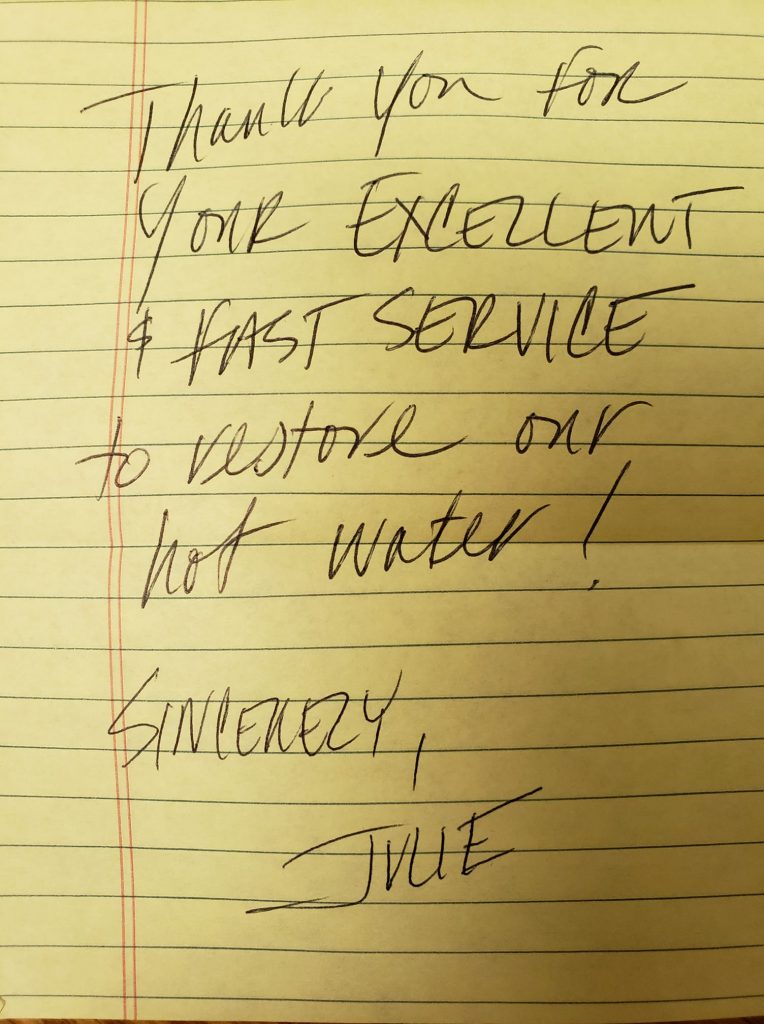 Thank you for
your EXCELLENT
& FAST SERVICE
to restore our
hot water!
SINCERELY,
JULIE